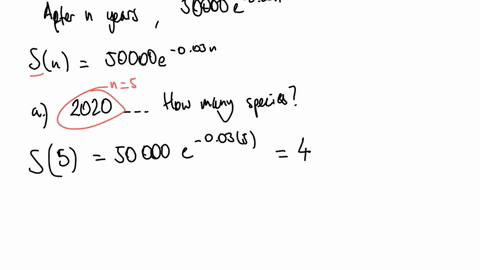 After n years, 50000e
S(n) = 50000e^-0.03n
n=5
a.) 2020 .... How many species?
S(5) = 50 000 e^-0.03(5) = 4